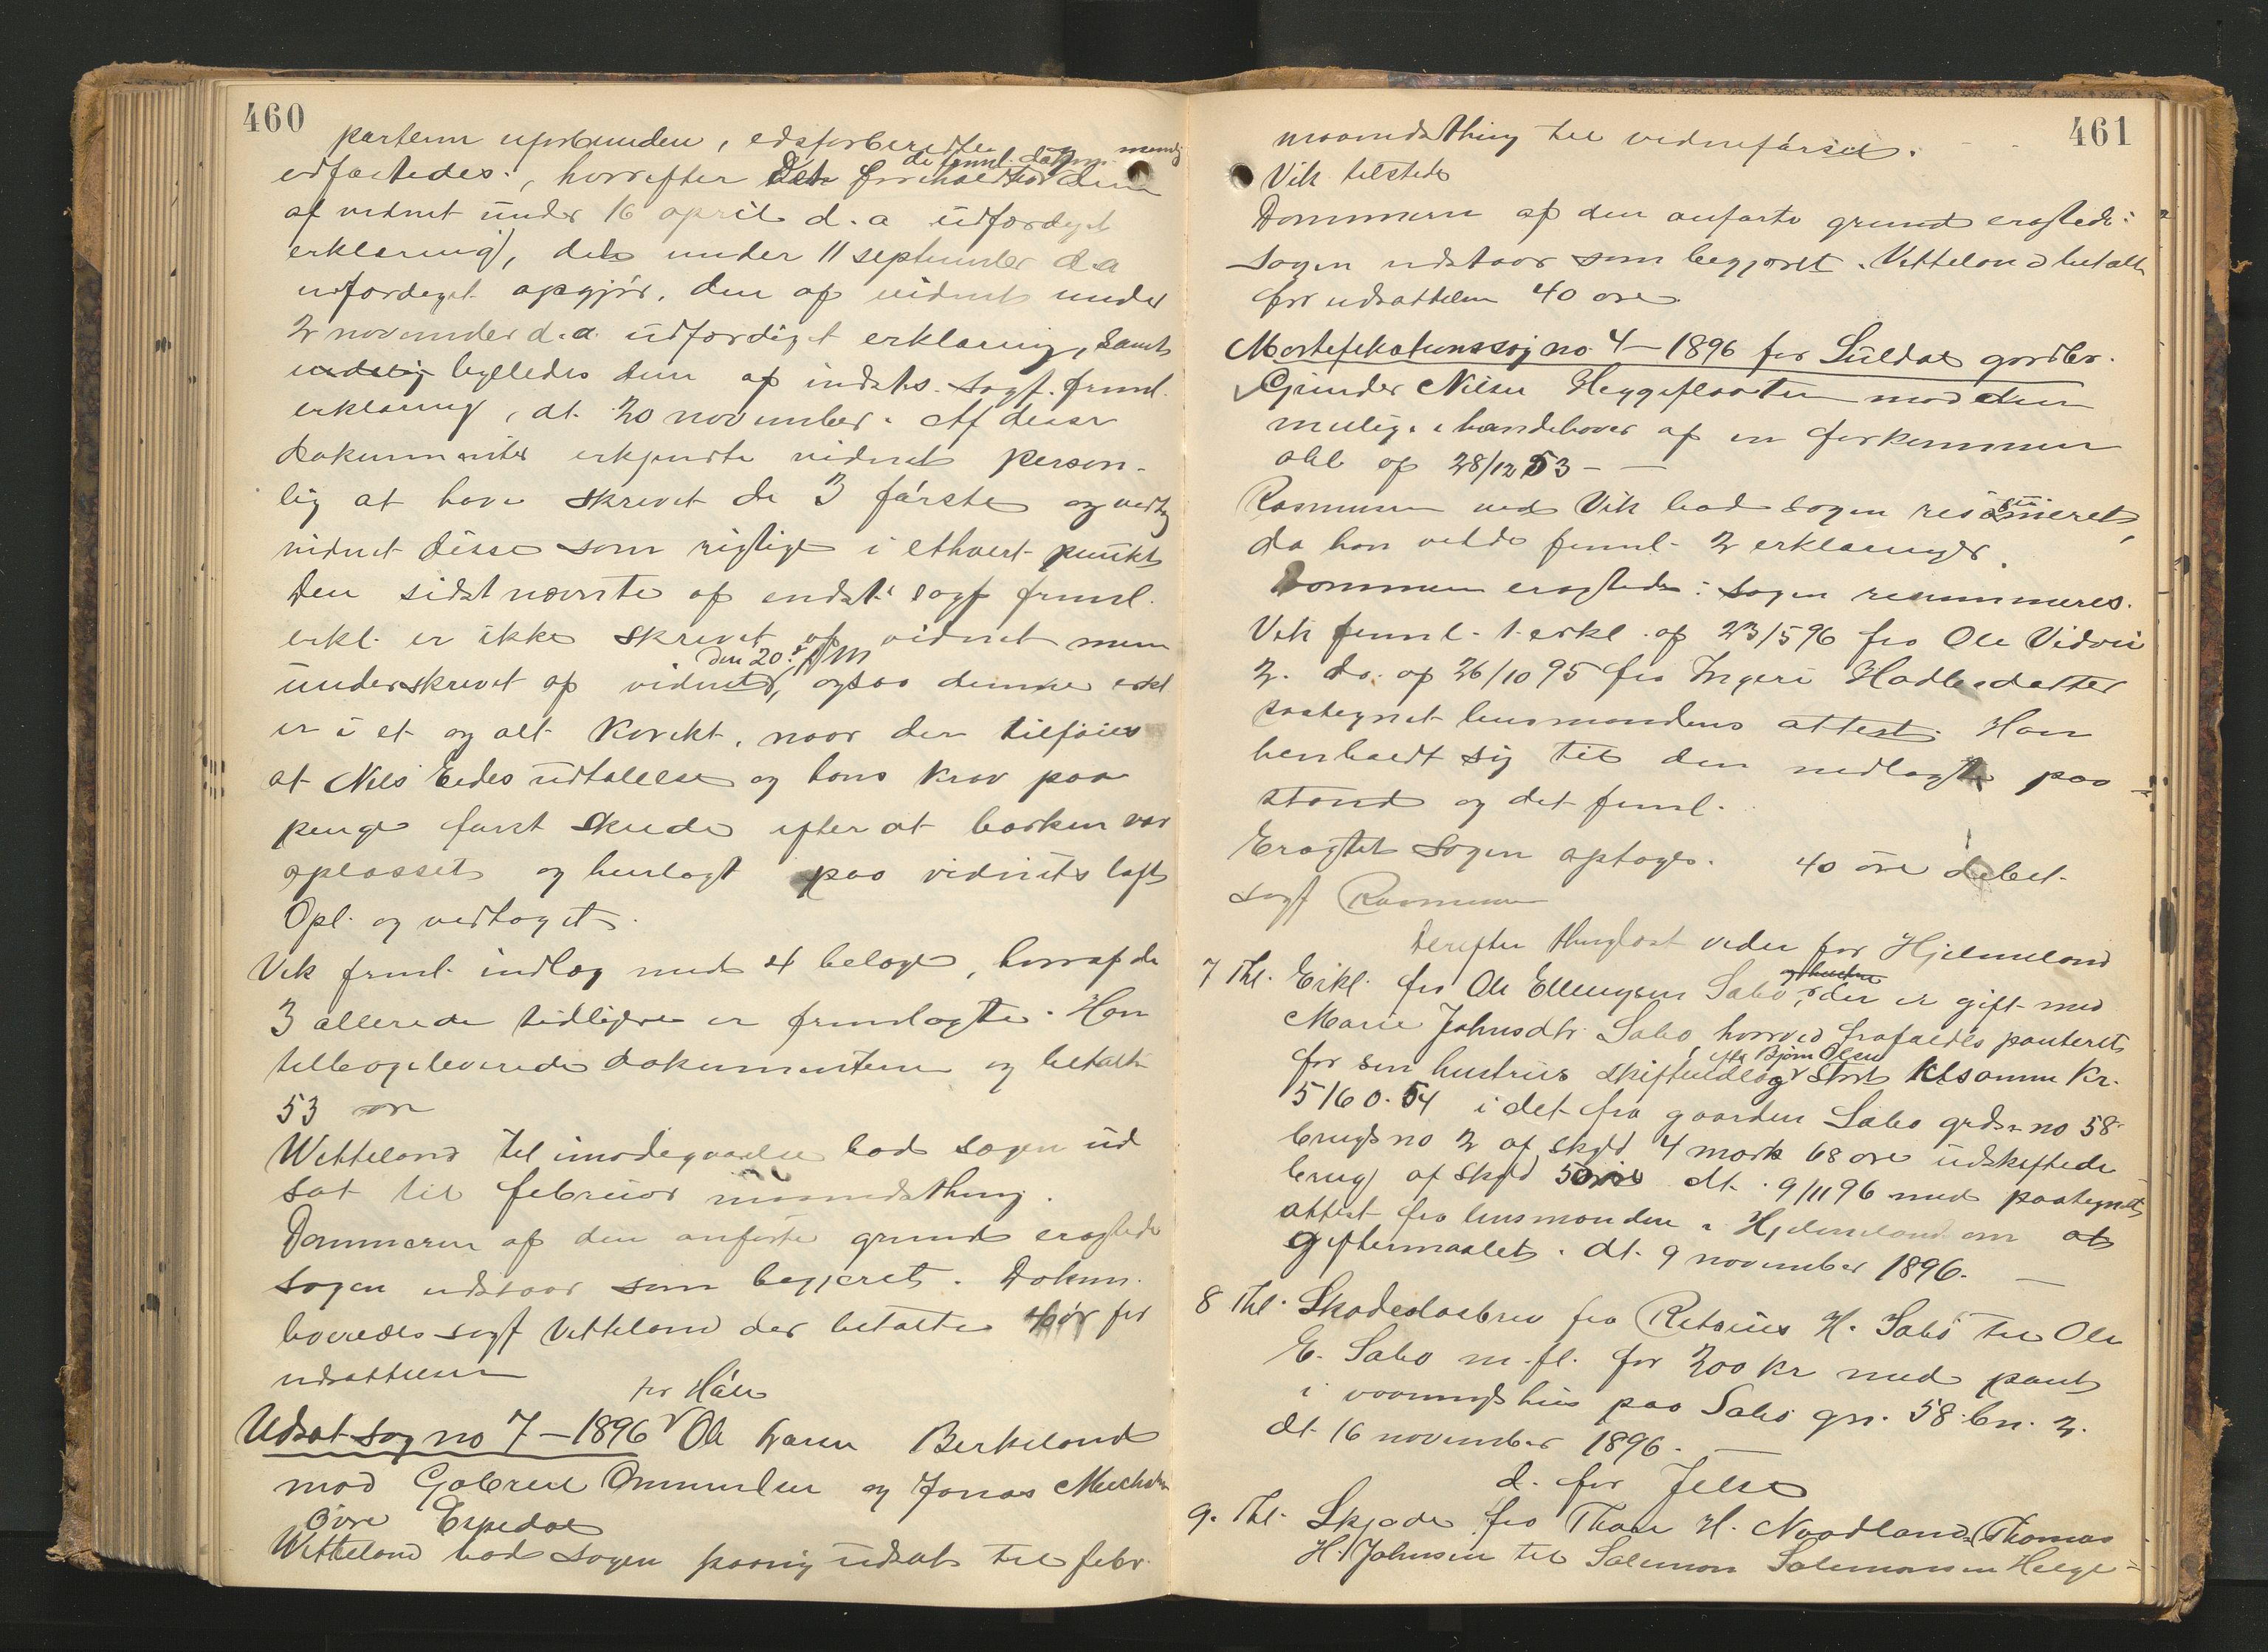 460
parterne uforbunden, edsforberedtes
edfæstedes, hvorefter det foreholdtes den
de freml. dokum.
af vidnet under 16 april d.a udfærdiget
erklæring, dels under 11 september d.a
udfærdiget opgjør, den af vidnet under
2 november d.a. udfærdiget erklæring, samt
endelig bylledes den af indst. sagf. freml.
erklæring, dt. 20 november. Af disse
dokumenter erkjendte vidnet person-
lig at have skrevet de 3 første og vedtog
vidnet disse som rigtige i ethvert punkt
Den sidst nævnte af indst. sagf freml.
erkl. er ikke skrevet af vidnet men
den 20. ds
underskrevet af vidnet, ogsaa denne erkl
er i et og alt korekt, naar der tilføies
at Nils Eides udtalelse og hans krav paa
penge først skede efter at barken var
oplosset og henlagt paa vidnets loft
Opl. og vedtaget.
Vik freml. indlæg med 4 belæge, hvoraf de
3 allerede tidligere er fremlagte. Han
tilbageleverede dokumenterne og betalte
53 øre
Wetteland til imødegaaelse bad sagen ud
sat til februar maanedsthing.
Dommeren af den anførte grund eragtede
sagen udstaar som begjæret. Dokum.
leveredes sagf Vetteland der betalte 40 ør for
udsættelsen
for Håle
Udsat sag no 7 – 1896 Ole Larsen Berkeland
mod Gabriel Ommundsen og Jonas Mikkelsen
Øvre Espedal
Wetteland bad sagen paany udsat til febr.
461
maanedsthing til vidneførsel.
Vik tilstede
Dommeren af den anførte grund eragtede:
Sagen udstaar som begjæret. Vetteland betalte
for udsættelsen 40 øre
Mortefikationssag no 4 – 1896 for Suldal gardbr.
Gjunder Nilsen Heggeflaaten mod den
mulige ihændehaver af en forkommen
obl af 28/12 53 –
Rasmussen ved Vik bad sagen resumeret,
da han vilde freml. 2 erklæringer.
Dommeren eragtede: Sagen resummeres.
Vik freml. 1. erkl. af 23/5 96 fra Ole Vidvei
2. do. af 26/10 95 fra Ingeri Hadlesdatter
paategnet lensmandens attest. Han
henholdt sig til den nedlagte paa
stand og det freml.
Eragtet Sagen optages. 40 øre debet.
Sagf Rasmussen
Derefter thinglæst videre for Hjelmeland
7 Thl. Erkl. fra Ole Ellingsen Sabø, der er gift med
og hustru
Marie Johnsdtr. Sabø, hvorved frafaldes panteret
efter Bjørn Olsen
for sin hustrus skifteudlæg stort tilsamm Kr.
5160.54 i det fra gaarden Sabø grds. no 58
brugs no 2 af skyld 4 mark 68 øre udskiftede
brug af skyld 5 øre dt. 9/11 96 med paategnet
attest fra lensmanden i Hjelmeland om at
giftermaalet. dt. 9 november 1896. –
8 Thl. Skadesløsbrev fra Retsius H. Sabø til Ole
E. Sabø m.fl. for 200 kr med pant
i vaaningshus paa Sabø gn. 58 bn. 2.
dt 16 november 1896. –
d. for Jelse
9. Thl. Skjøde fra Thore H. Nordland (Thomas
H. Johnsen til Salemon Salemonsen Helge-